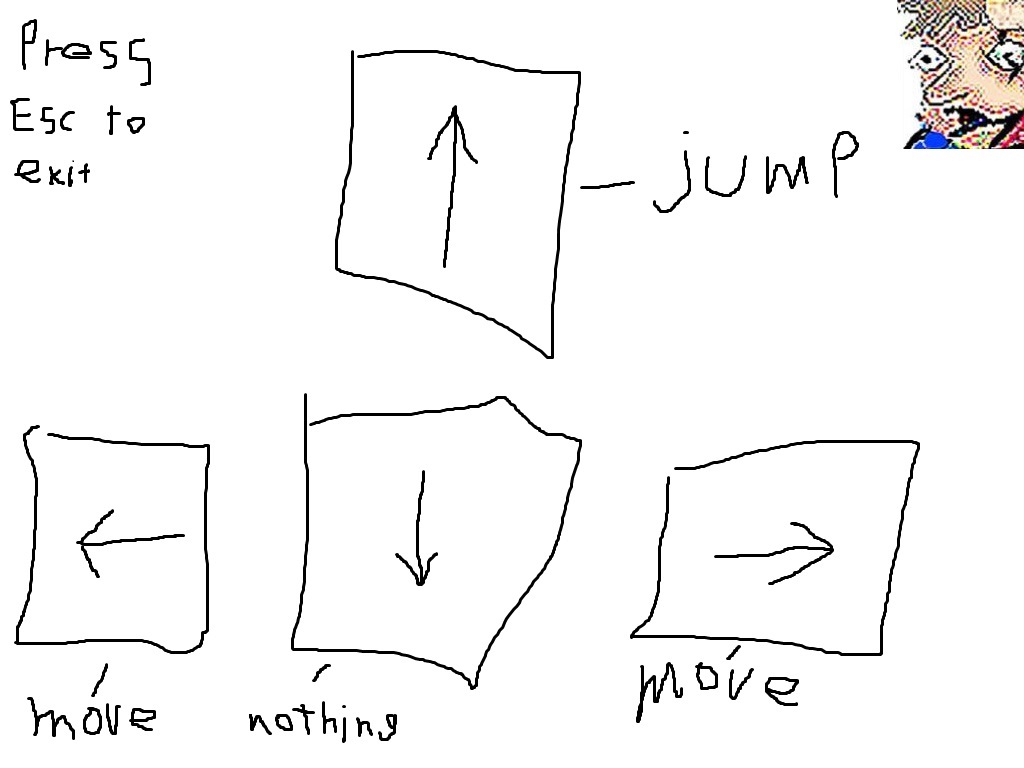 Press
Esc to
exit
jump
move
nothing
move